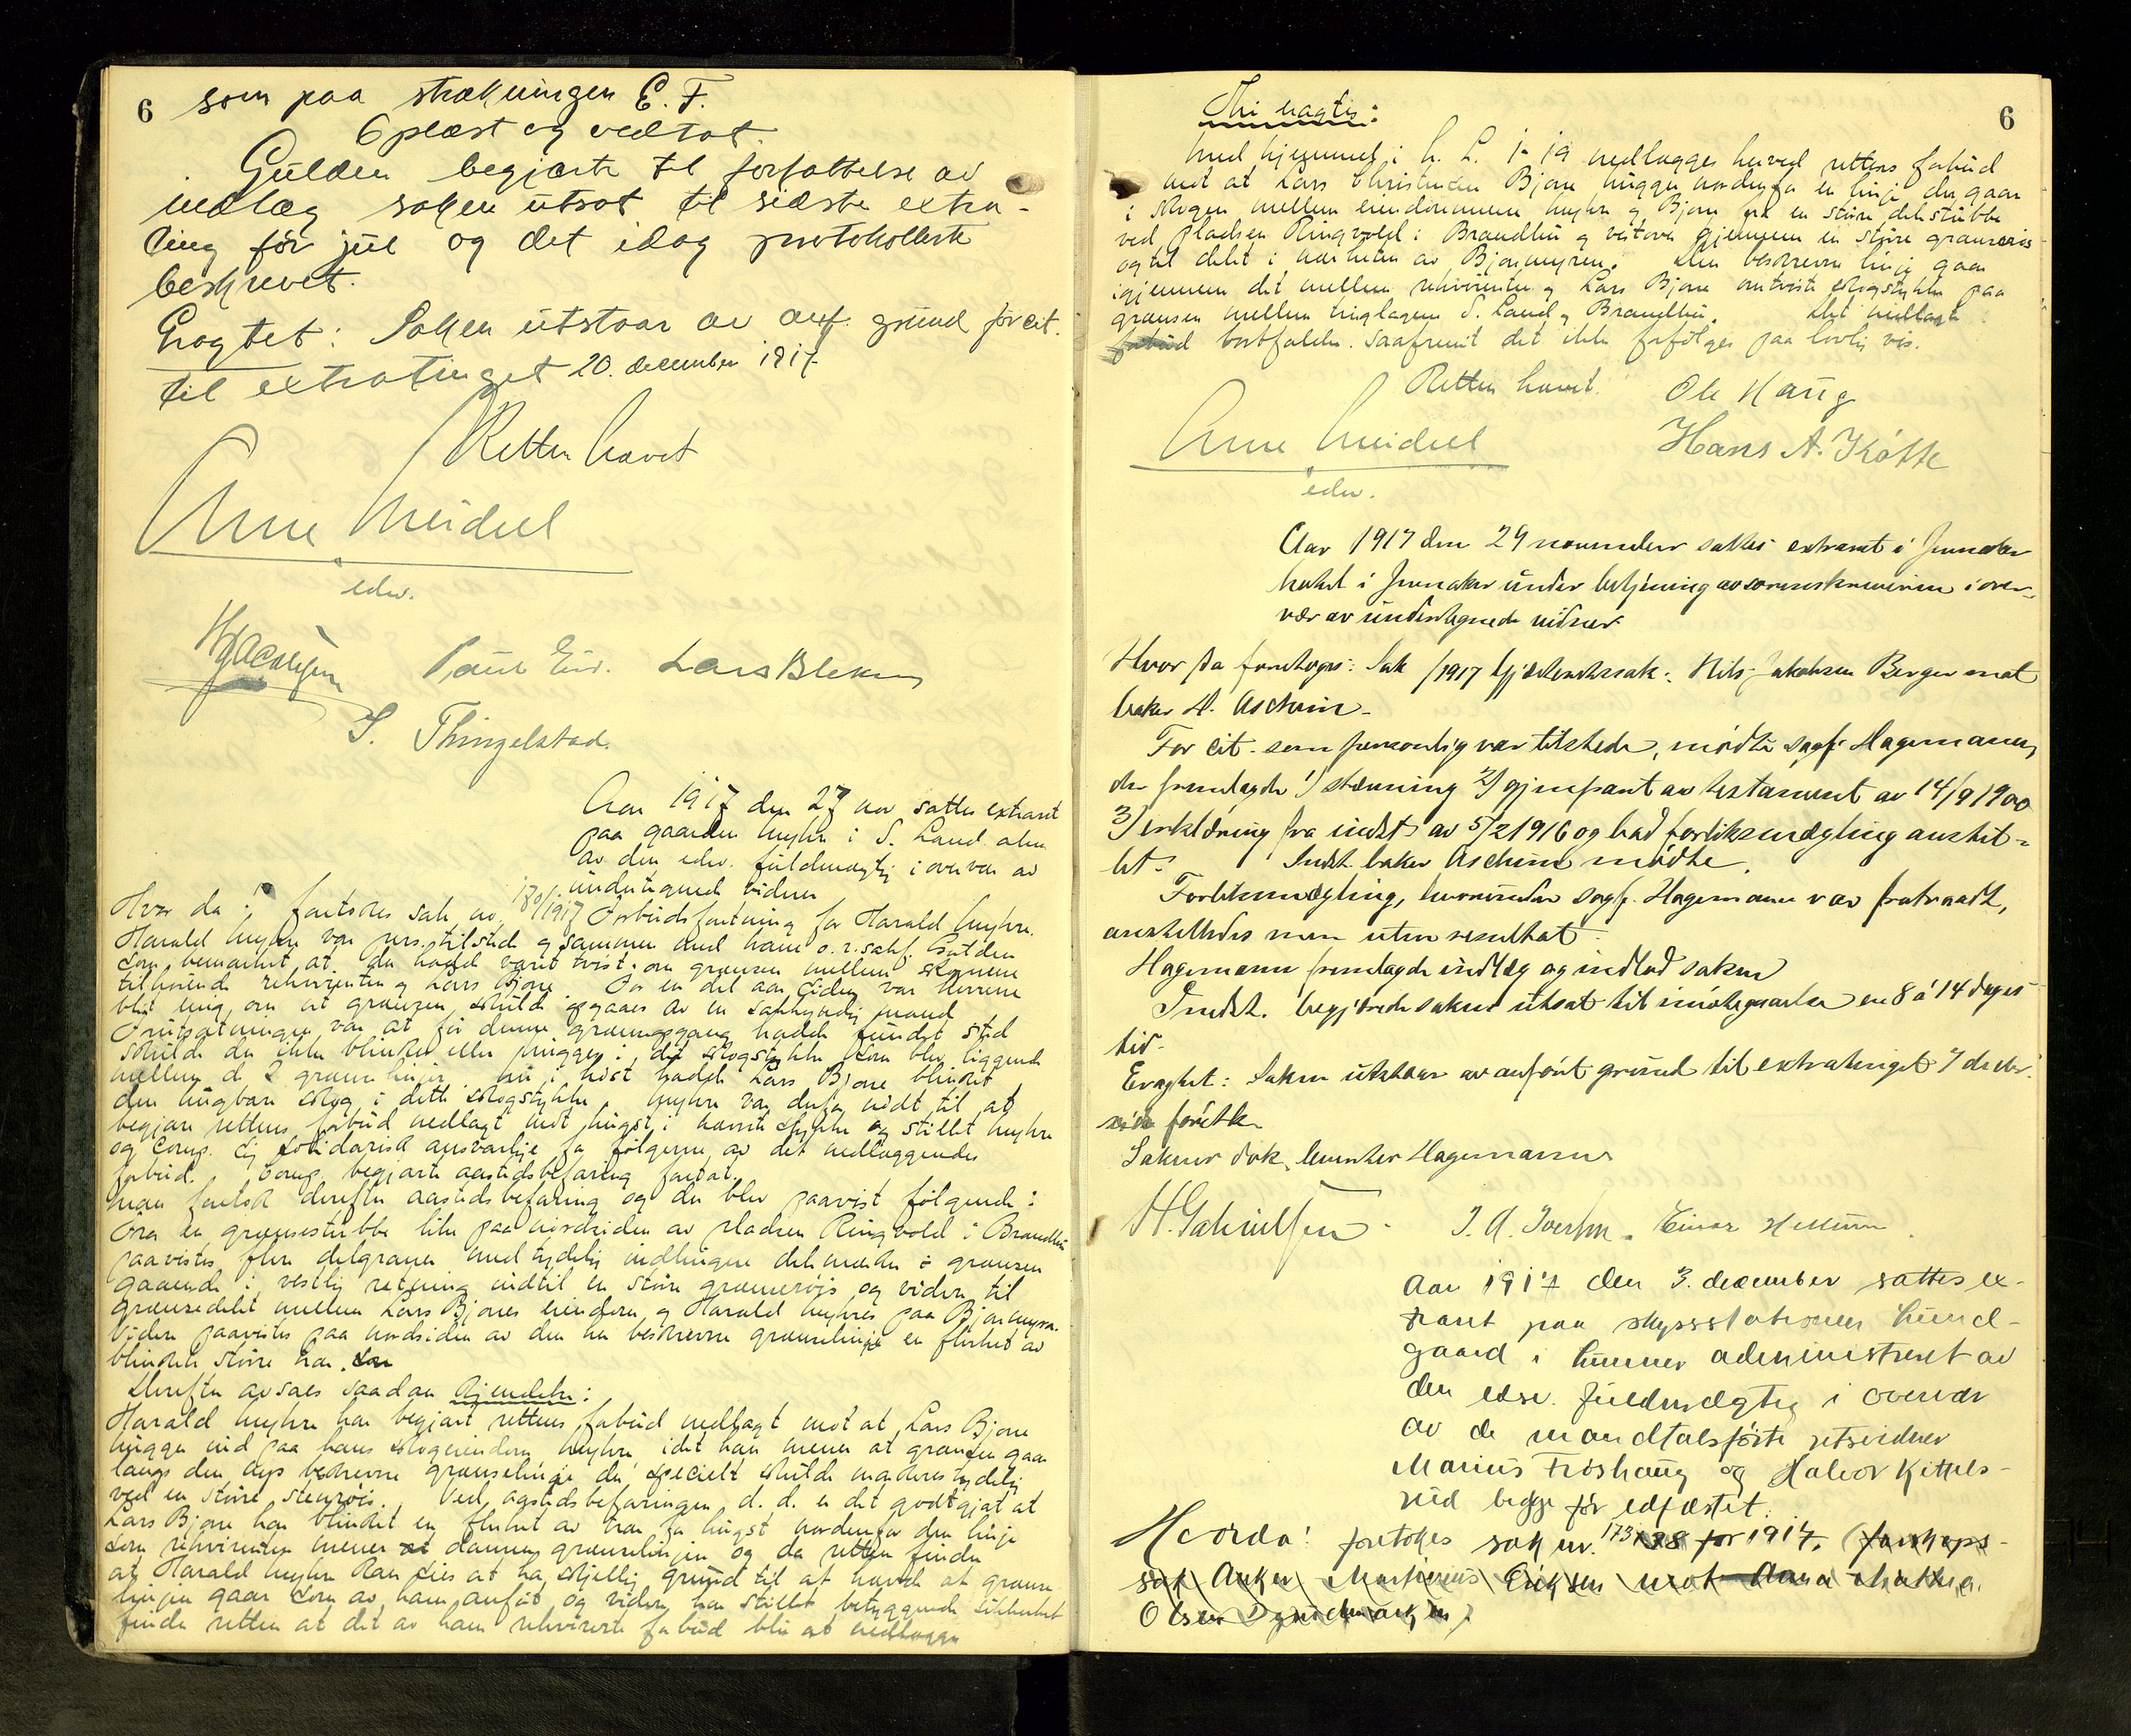 6 som paa strækningen E. F.
Oplæst og vedtat.
Gulden begjærte til forfattelse av
indlæg saken utsat til sidste extra-
ting før jul og det idag protokollerte
beskrevet.
Eragtet: Saken utstaar av anf. grund for cit.
til extratinget 20. december 1917.
Retten hævet
Arne Meidell
edsv.
Paul Lars Bleken
S. Thingelstad.
Aar 1917 den 27 nov sattes extraret
paa gaarden Myhre i S. Land
av den edsv. fuldmægtig i overvær av
undertegnede vidner
Hvor da: foretokes sak nr. 180/1917 Forbudsforretning for Harald Myhre.
Harald Myhre var pers. tilstede og sammen med ham o.r.sakf. Gulden
som bemærket at der hadde været tvist om grænsen mellem skogene
tilhørende rekvirenten og Lars Bjone. For en del aar siden var herrene
blit enig om at grænsen skulde opgaaes av en sakkyndig mand
Forutsætningen var at før denne grænsegang hadde fundet sted
skulde der ikke blinkes eller hugges i det skogstykke som blev liggende
mellem de 2 grænselinjer. Nu i høst hadde Lars Bjone blinket
den hugbare skog i dette skogstykke. Myhre var derfor nødt til at
begjære rettens forbud nedlagt mot hugst i nævnte stykke og stillet Myhre
og Comp. sig solidarisk ansvarlige for følgerne av det nedlæggendes
forbud. Comp. begjærte aastedsbefaring foretat.
Man foretok derefter aastedsbefaring og der blev paavist følgende:
Fra en grænsestubbe like paa nordsiden av pladsen Ringvold i Brandbu
paavistes flere delgraner med tydelig indhugne delemerker i grænsen
gaaende i vestlig retning indtil en større grænserøis og videre til
grænsedelet mellem Lars Bjones eiendom og Harald Myhres paa Bjonemyra.
Videre paavistes paa nordsiden av den nu beskrevne grænselinje en flerhet av
blinkede større trær.
Derefter avsaes saadan Kjendelse:
Harald Myhre har begjært rettens forbud nedlagt mot at Lars Bjone
hugger ind paa hans skogeiendom Myhre idet han mener at grænsen gaar
langs den nys beskrevne grænselinje der specielt skulde markeres tydelig
ved en større stenrøis. Ved aastedsbefaringen d. d. er det godtgjort at
Lars Bjone har blinket en flerhet av trær for hugst nordenfor den linje
som rekvirenten mener danner grænselinjen og da retten finder
at Harald Myhre kan sies at ha skjellig grund til at hævde at grænse
linjen gaar som av ham anført og videre har stillet betryggende sikkerhet
finder retten at det av ham rekvirerte forbud blir at nedlægge
6
Thi eragtes:
Med hjemmel i h. L. 1-19 nedlægges herved rettens forbud
mot at Lars Christensen Bjone hugger nordenfor en linje der gaar
i skogen mellem eiendommene Myhre og Bjone fra en større delestubbe
ved pladsen Ringvold i Brandbu og vestover gjennem en større grænserøis
og til delet i nærheten av Bjonemyren. Den beskrevne linje gaar
igjennem det mellem rekvirenten og Lars Bjone omtviste skogstykke paa
grænsen mellem tinglagene S. Land og Brandbu. Det nedlagte
forbud bortfalder saafremt det ikke forfølges paa lovlig vis.
Retten hævet. Ole Haug
Arne Meidell Hans A. Kótte
edsv.
Aar 1917 den 29 november sattes extraret i Jevnaker
hotel i Jevnaker under betjening av sorenskriveren i over-
vær av undertegnede vidner
Hvor da foretoges: Sak /1917 Gjæsterettssak: Nils Jakobsen Berger mot
baker A. Aschim.
For cit. som personlig var tilstede, mødte sagf. Hagemann,
der fremlagde 1) stævning 2) gjenpart av testament av 14/9 1900
3) erklæring fra indst. av 5/2 1916 og bad forliksmægling anstil-
let. Indst. baker Aschim mødte.
Forliksmægling, hvorunder sagf. Hagemann var fratraadt,
anstilledes men uten resultat.
Hagemann fremlagde indlæg og indlod saken
Indst. begjærede saken utsat til imøtegaaelse en 8 á 14 dages
tid.
Eragtet: Saken utstaar av anført grund til extratinget 7 decbr.
førstk.
Sakens dok. leverdes Hagemann.
H. Gabrielsen. J. A. Iversen. Einar Hellum.
Aar 1917 den 3. december sattes ex-
traret paa skysstationen Lund-
gaard i Lunner administreret av
den edsv. fuldmægtig i overvær
av de mandtalsførte retsvidner
Marius Frøshaug og Halvor Kittels-
rud begge før edfæstet.
Hvorda: foretokes sak nr. 173 for 1917. (farskaps-
sak Anker Martinius Eriksen mot Anna Mathea
Olsen